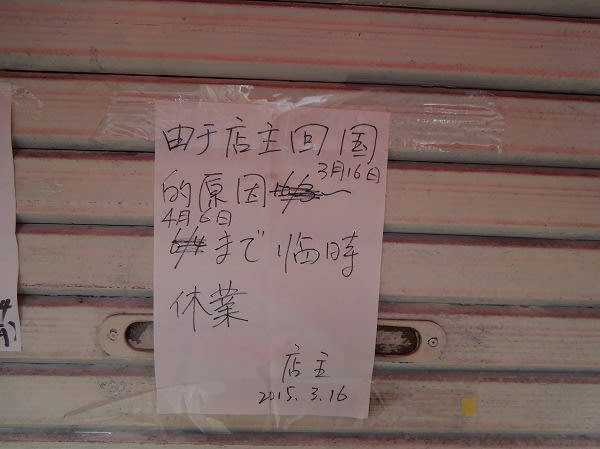 由于店主回国
的原因 3月16日
4月6日
まで臨時
休業
店主
2015.3.16